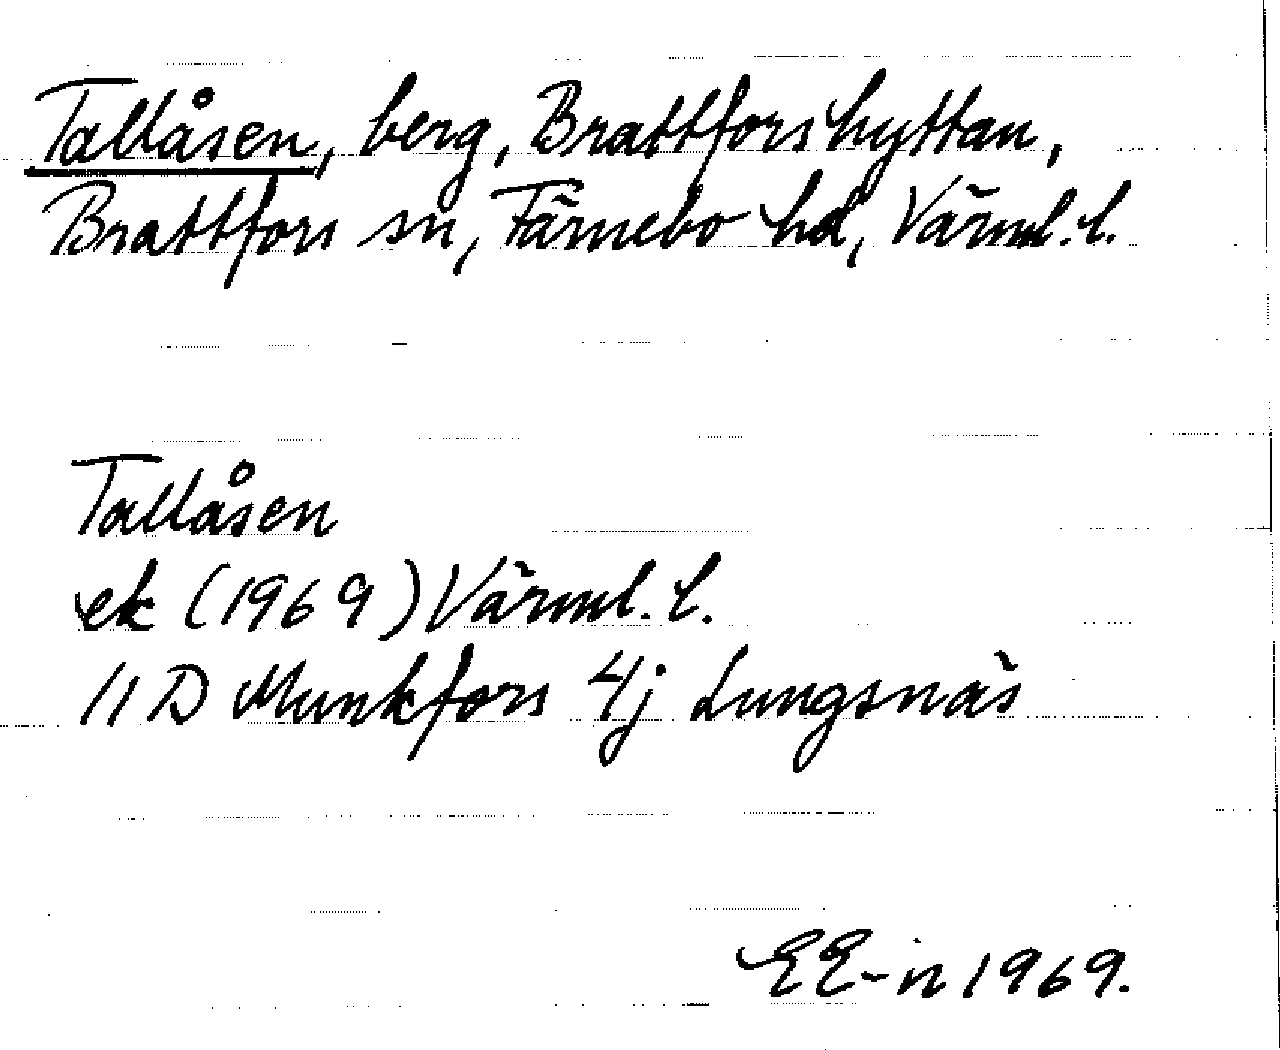 Tallåsen, berg, Brattforshyttan,
Brattfors sn, Färnebo hd, Värml. l.
Tallåsen
ek (1969) Värml. l.
11 D Munkfors 4j Lungsnäs
EE-n 1969.